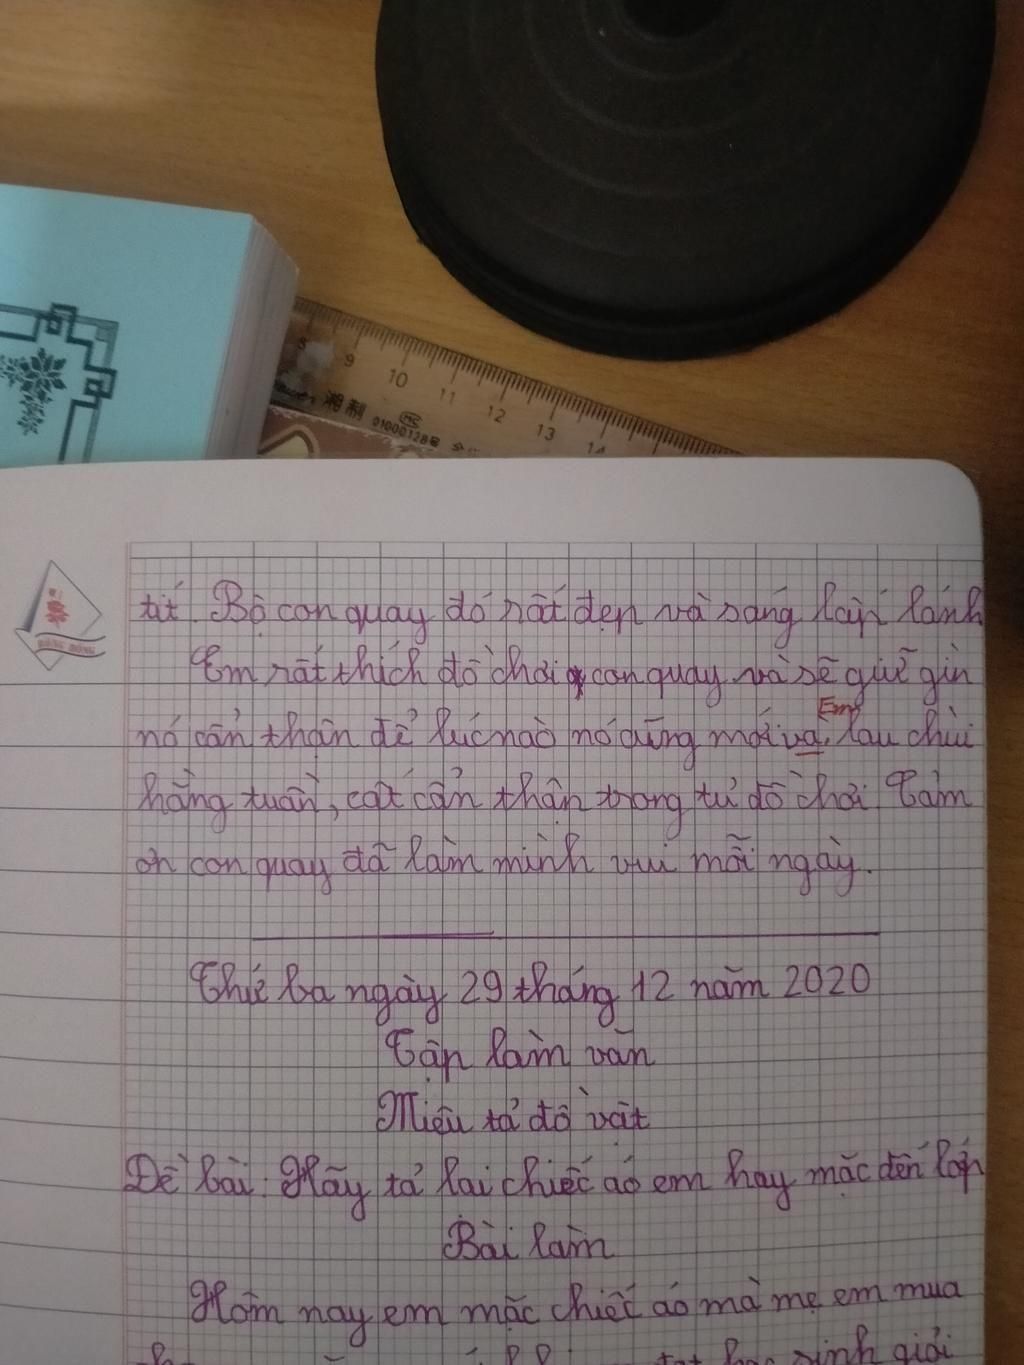 8 9 10 11 12 13 14
湘制 01000128号
tít. Bộ con quay đó rất đẹp và sáng lấp lánh
Em rất thích đồ chơi con quay và sẽ giữ gìn
Em
nó cẩn thận để lúc nào nó cũng mới và lau chùi
hằng tuần, cất cẩn thận trong tủ đồ chơi. Cảm
ơn con quay đã làm mình vui mỗi ngày.
Thứ ba ngày 29 tháng 12 năm 2020
Tập làm văn
Miêu tả đồ vật
Đề bài: Hãy tả lại chiếc áo em hay mặc đến lớp
Bài làm
Hôm nay em mặc chiếc áo mà mẹ em mua
học sinh giỏi